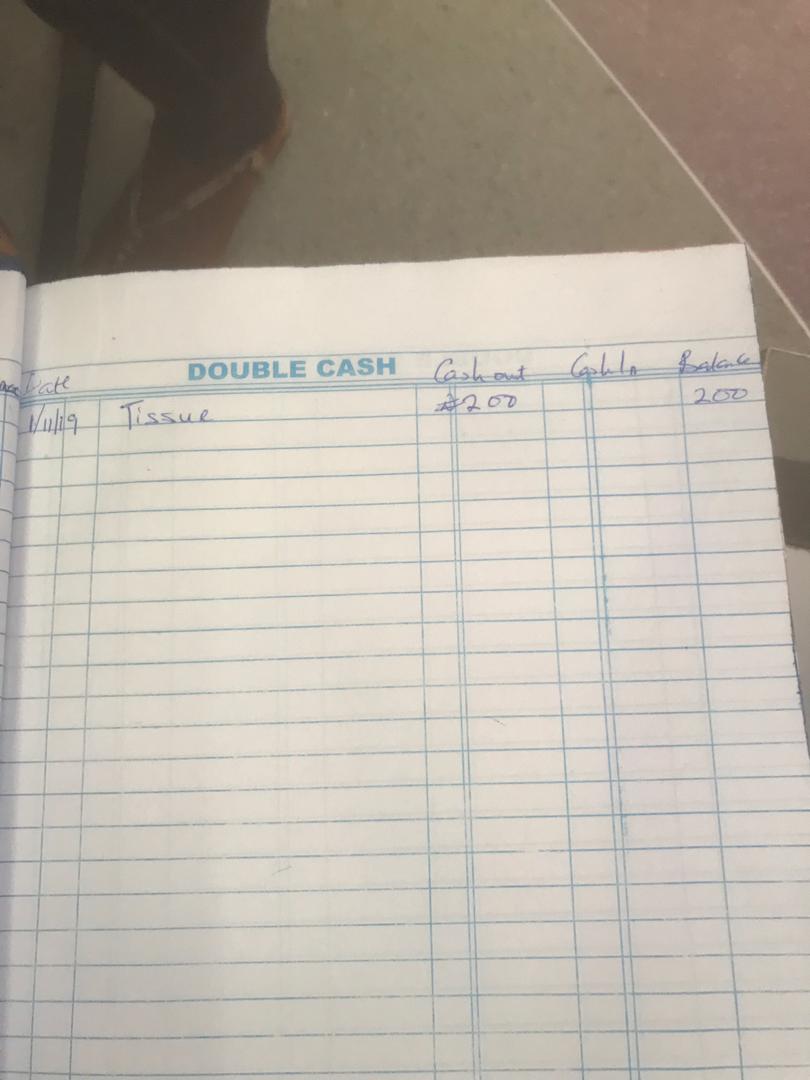 Date DOUBLE CASH Cash out Cash In Balance
1/11/19 Tissue ₦200 200